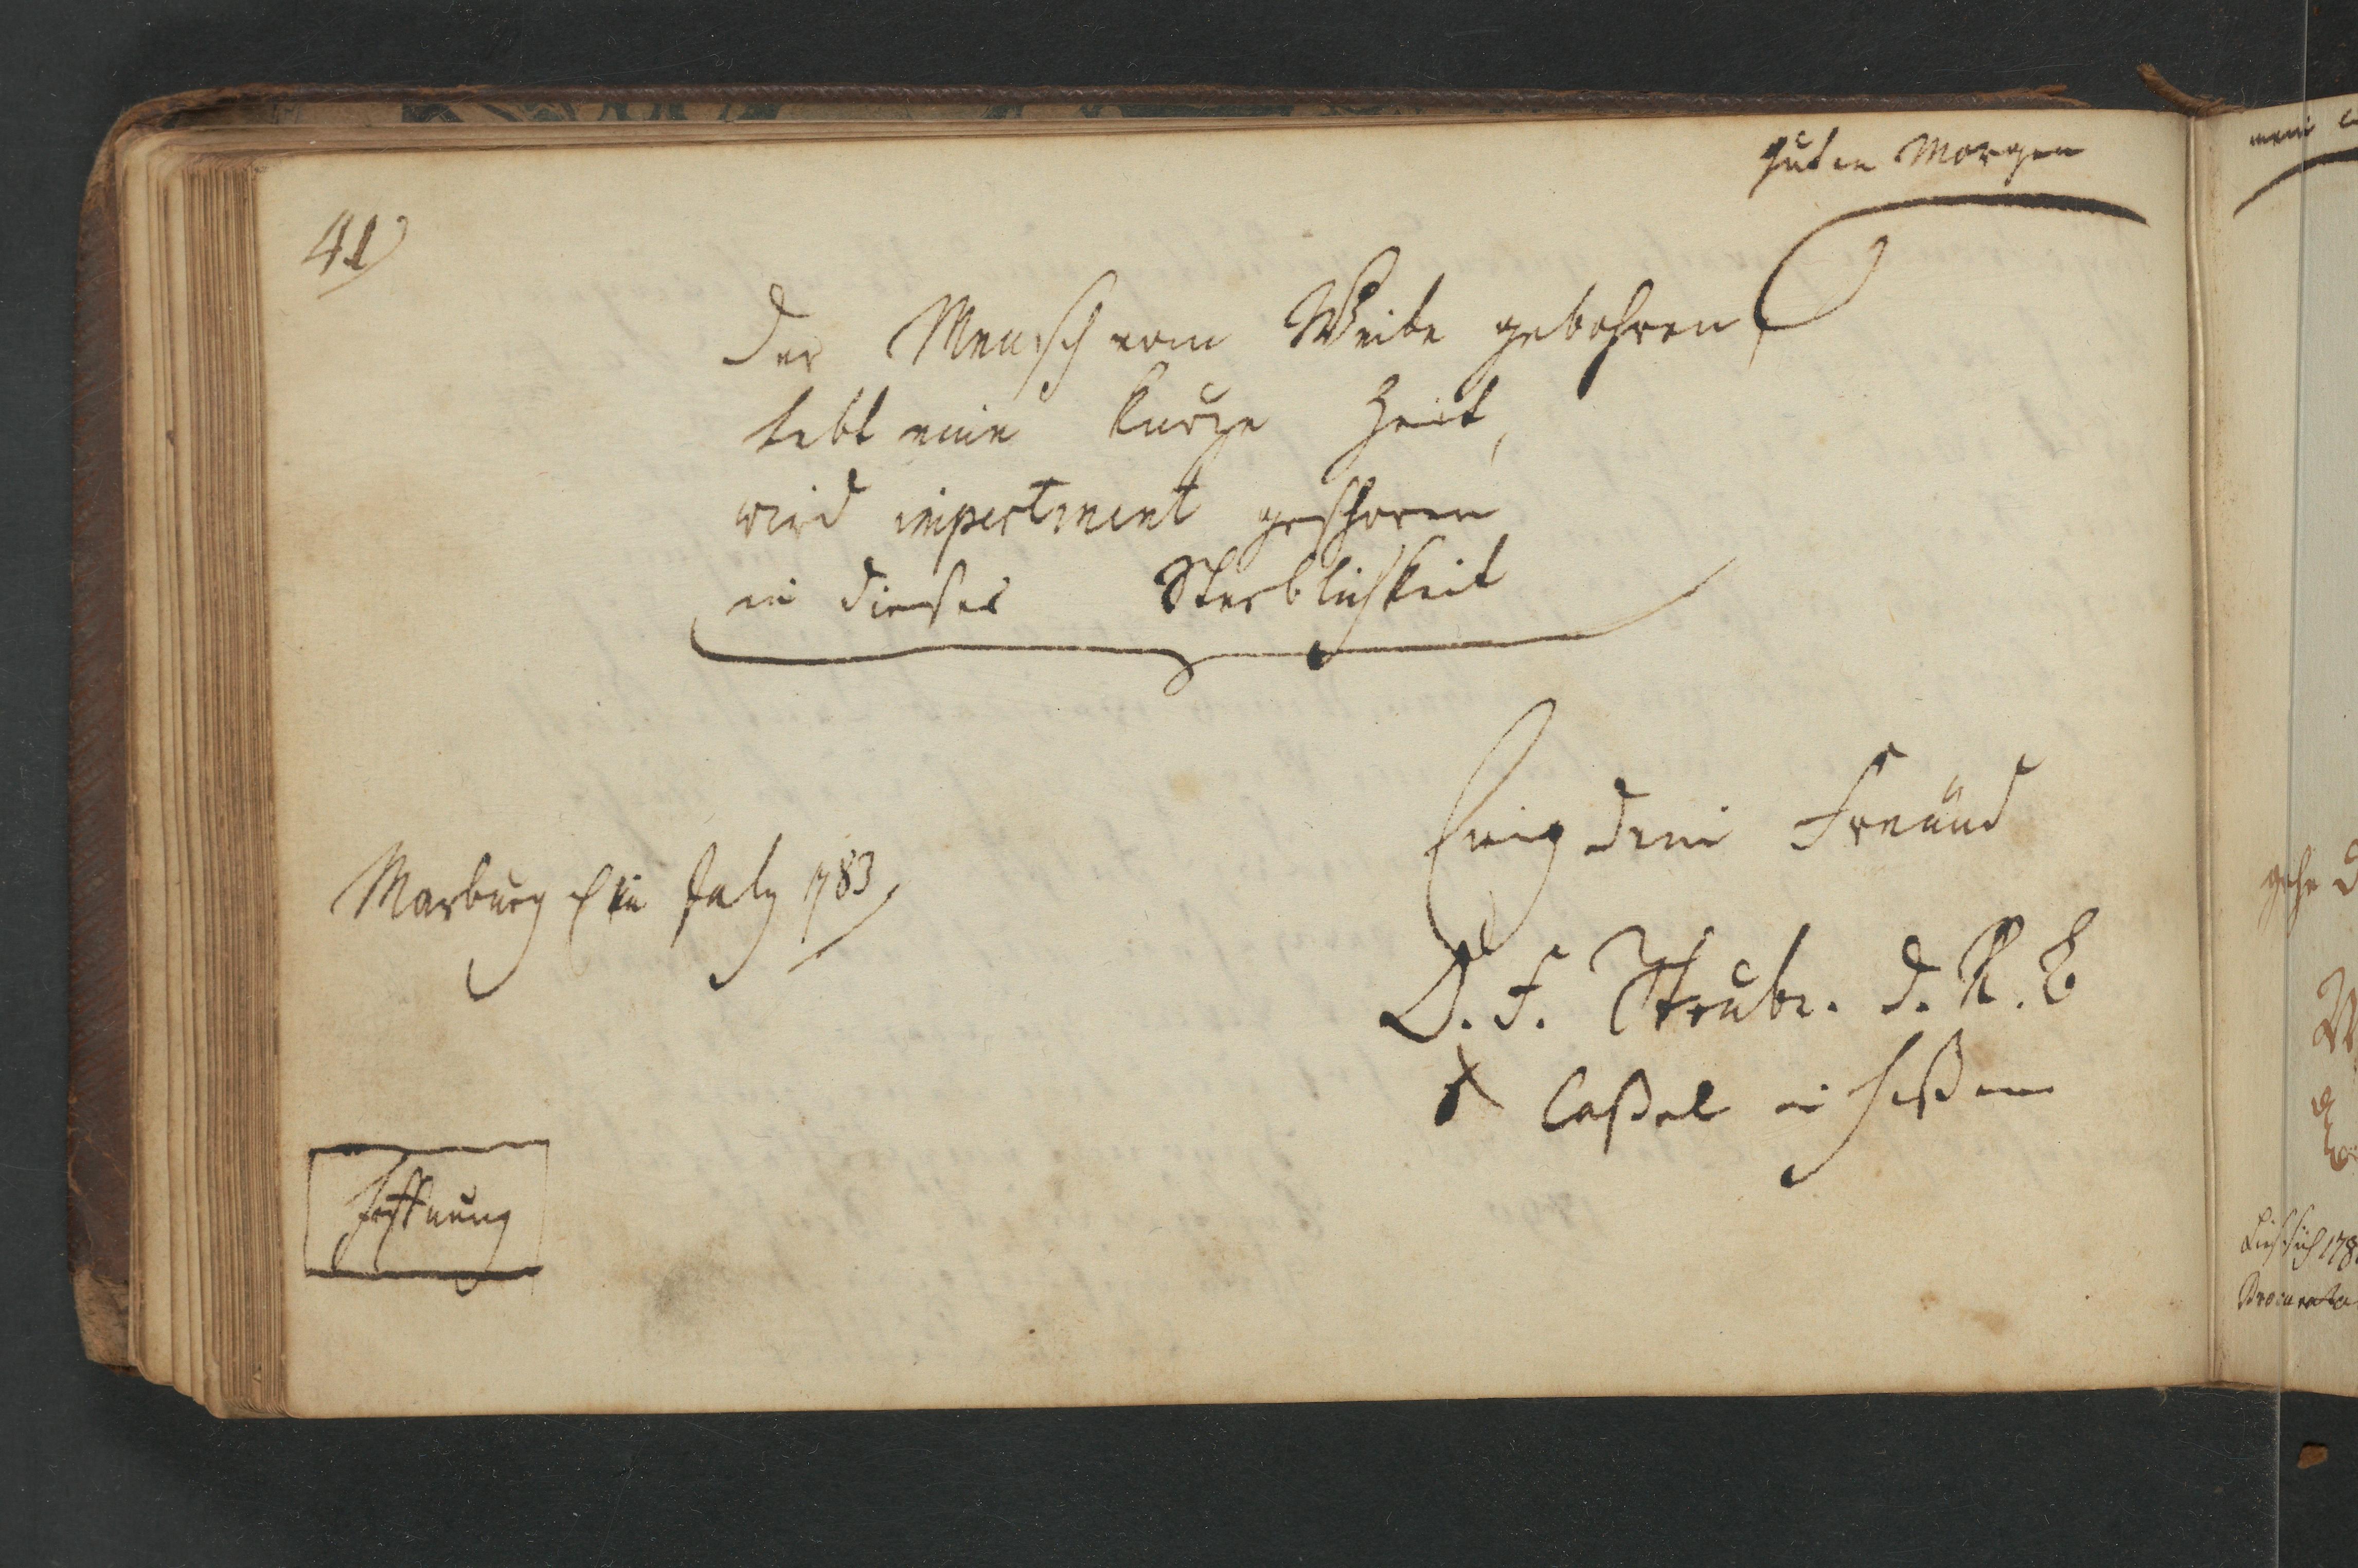 Guten Morgen
41
Der Mensch vom Weibe gebohren
lebt eine kurze Zeit,
wird impertinent geschoren
in dieser Sterblichkeit
Ewig dein Freund
Marburg im July 1783
D. F. Strube. d. R. B
Caßel in Heßen
Hoffnung
mein
gehe
178